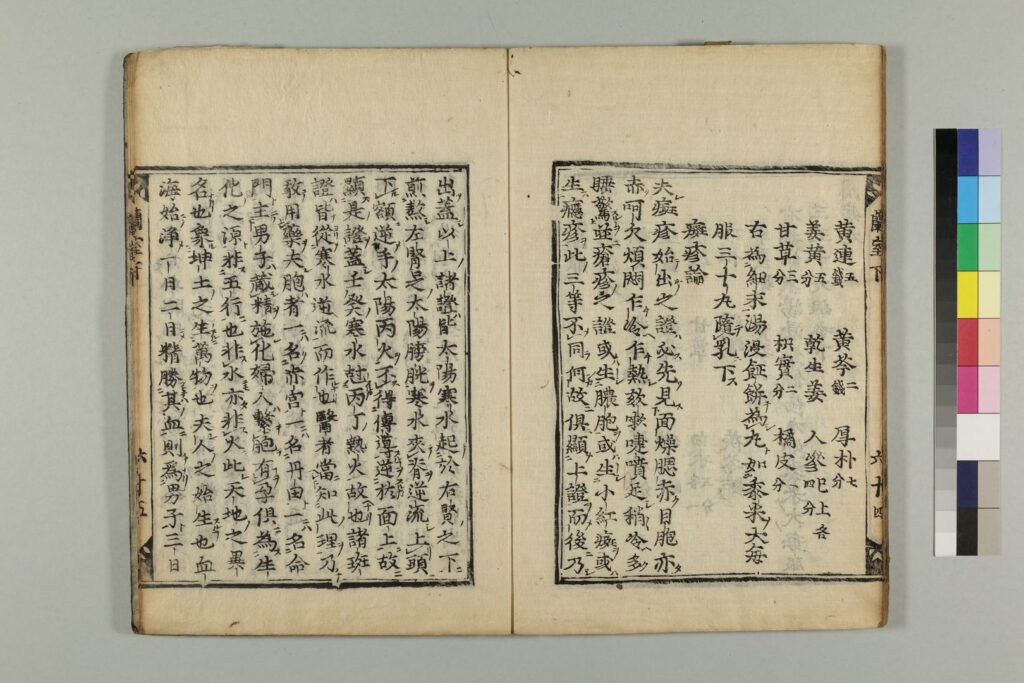 蘭室下
六十四
黄連五錢 黄芩二錢 厚朴七分
姜黄五分 乾生姜 人參巳上各
甘草三分 枳實二分 橘皮一分 四分
右為細末湯浸蒸餅為丸如黍米大每
服三十丸隨乳下
癍疹論
夫癍疹始出之證必先見面燥腮赤目胞亦
赤呵欠煩悶乍冷乍熱欬嗽嚏噴足稍冷多
睡驚並瘡疹之證或生膿胞或生小紅癍或
生癮疹此三等不同何故俱顯上證而後乃
出蓋以上諸證皆太陽寒水起於右腎之下
煎熬左腎足太陽膀胱寒水夾脊逆流上頭
下額逆手太陽丙火不得傳導逆於面上故
顯是證蓋壬癸寒水尅丙丁熱火故也諸斑
證皆從寒水逆流而作也醫者當知此理乃
敢用藥夫胞者一名赤宫一名丹田一名命
門主男子藏精施化婦人繫胞有孕俱為生
化之源非五行也非水亦非火此天地之異
名也象坤土之生萬物也夫人之始生也血
海始淨一日二日精勝其血則為男子三日
蘭室下
六十五